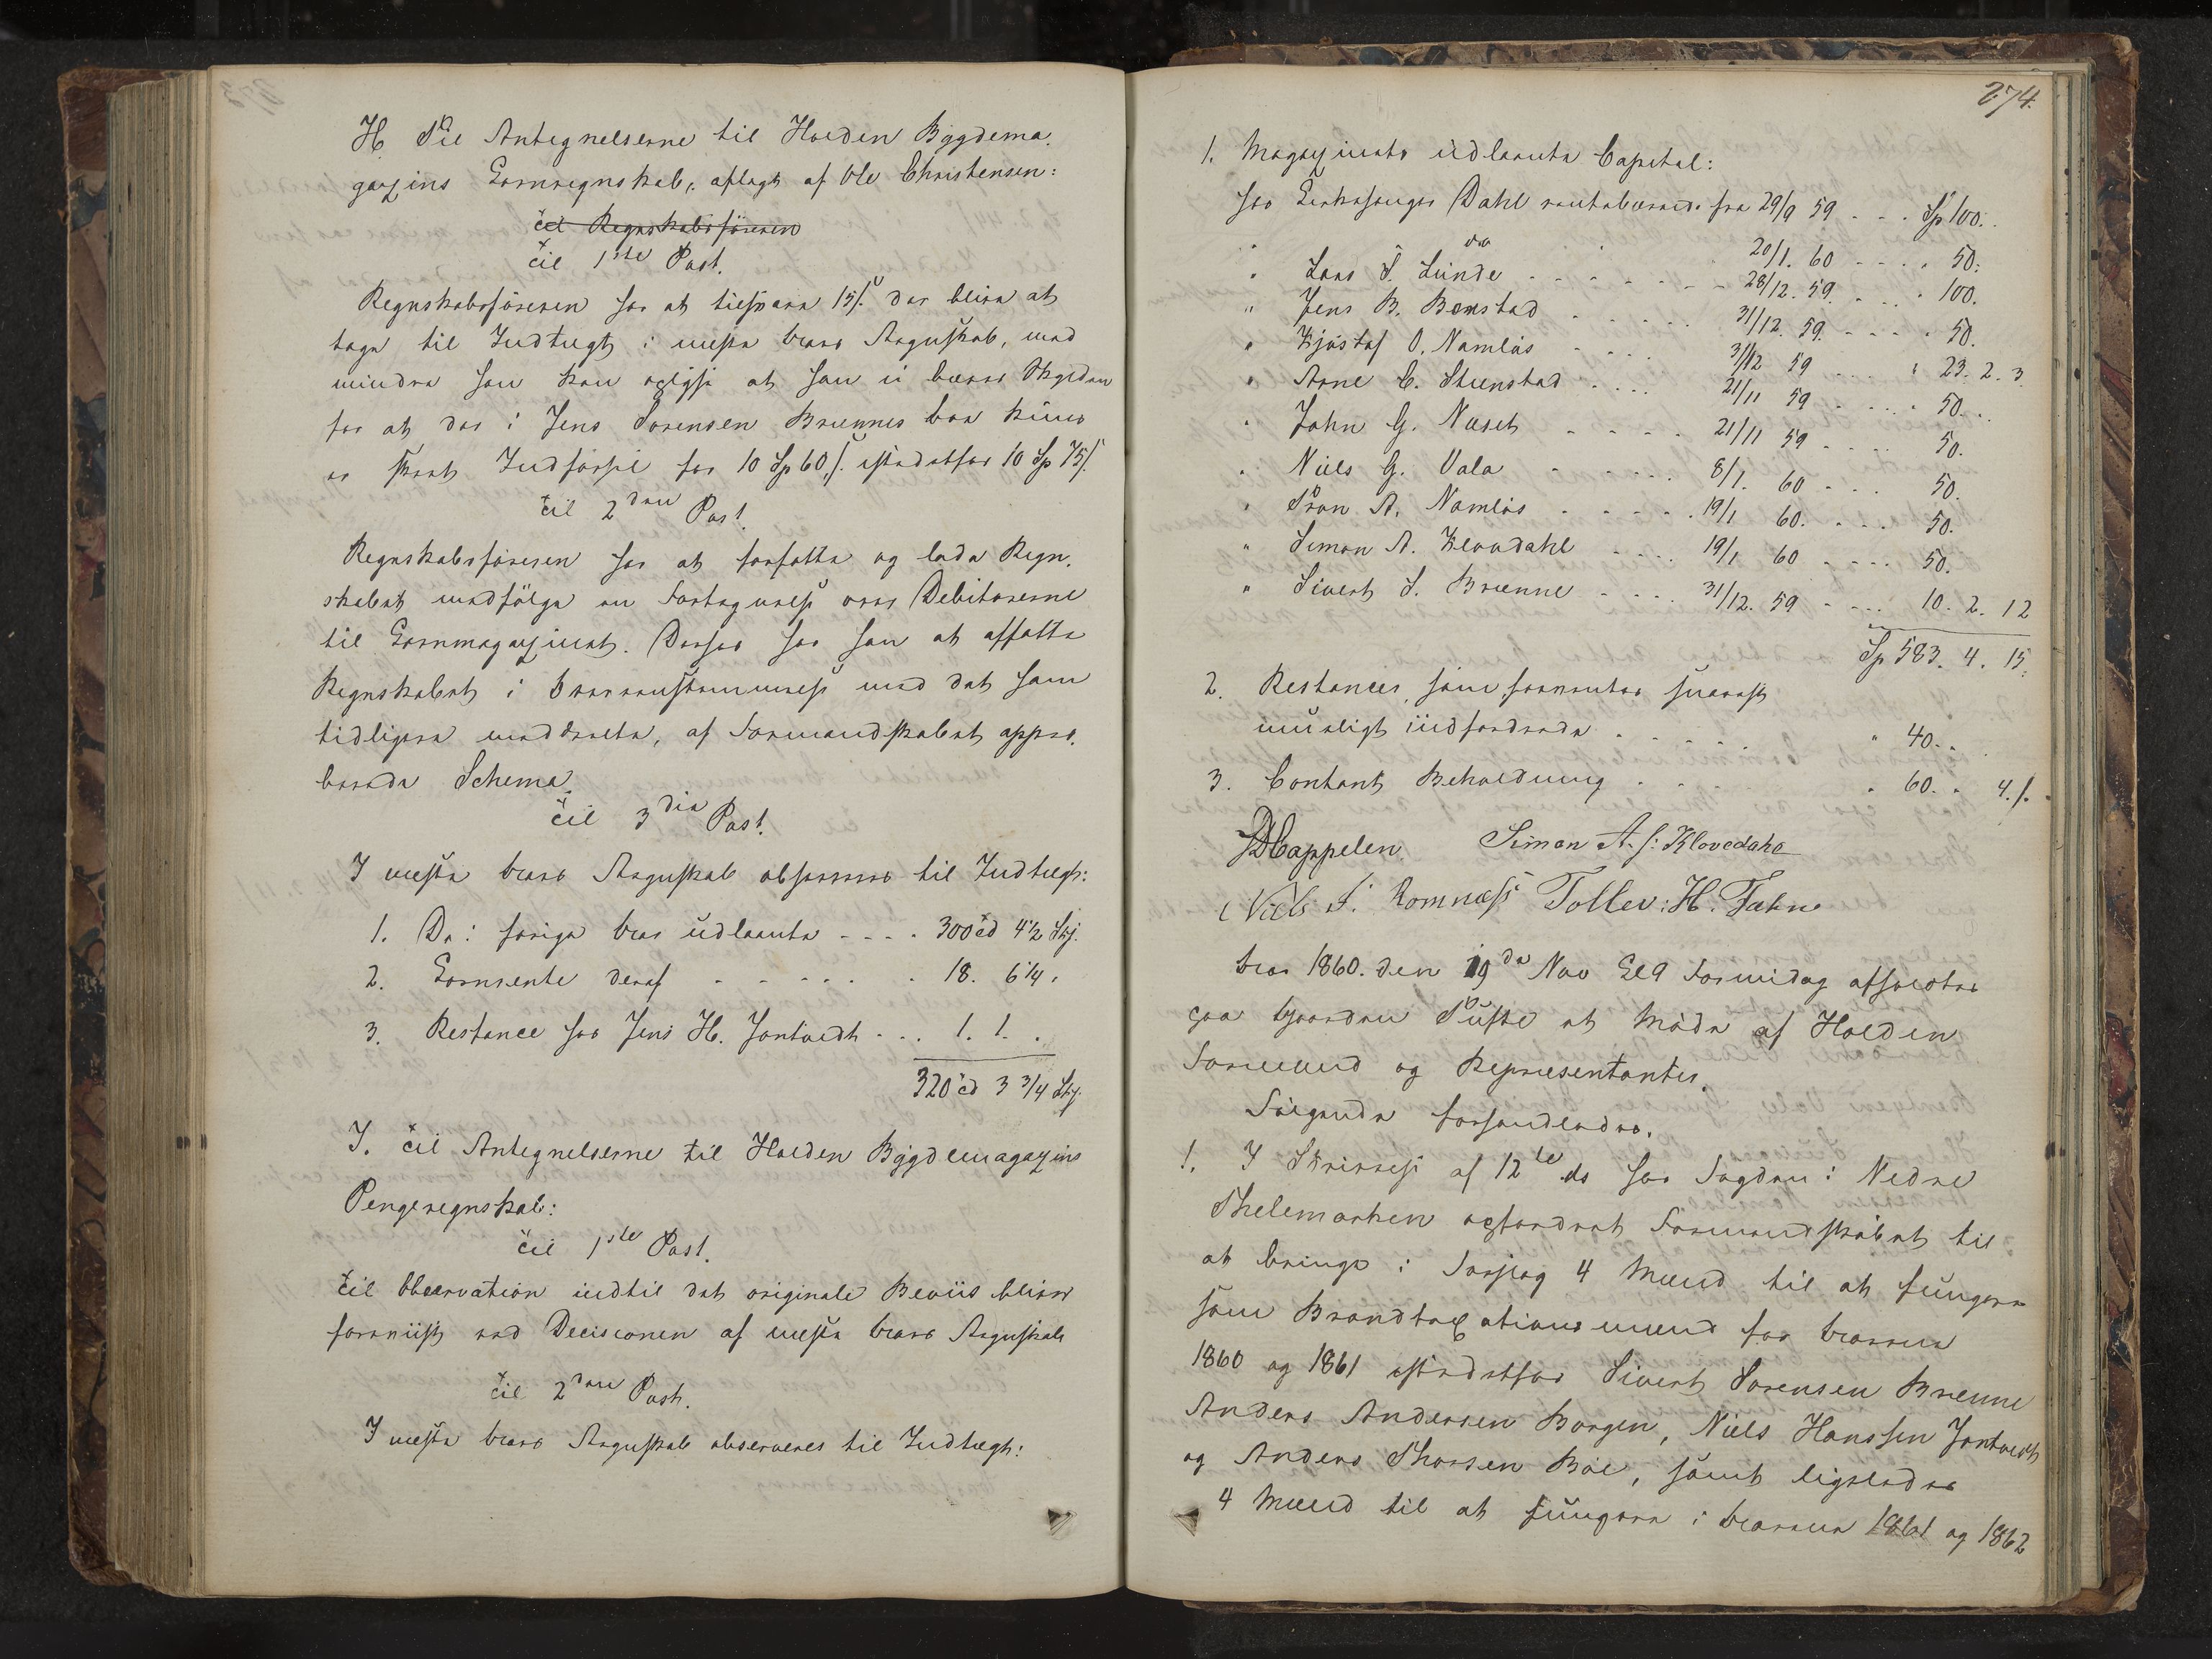 H. Til Antegnelserne til Holden Bygdema-
gazins Kornregnskab, aflagt af Ole Christensen:
Til Regnskabsføreren
Til 1ste Post.
Regnskabsføreren har at tilsvare 15 ß der bliver at
tage til Indtægt i næste Aars Regnskab, med
mindre han kan oplyse at han ei bærer Skylden
for at der i Jens Sørensen Brænnes
er skeet Indførsel for 10 Sp 60 ß istedetfor 10 Sp 75 ß
Til 2den Post.
Regnskabsføreren har at forfatte og lade Regn-
skabet medfølge en Fortegnelse over Debitorerne
til Kornmagazinet. Derhos har han at affatte
Regnskabet i Overeensstemmelse med det ham
tidligere meddeelte, af Formandskabet appro-
berede Schema.
Til 3die Post.
I næste Aars Regnskab observeres til Indtægt:
1. De i forige Aar udlaante - - - - 300 Td 4 1/2 Skj.
2. Kornrente deraf - - - - - - 18. 6 1/4 "
3. Restance hos Jens H. Jontvedt - - . 1. 1. .
320 Td 3 3/4 Skj.
I. Til Antegnelserne til Holden Bygdemagazins
Pengeregnskab:
Til 1ste Post.
Til Observation indtil det originale Beviis bliver
foreviist ved Decisionen af næste Aars Regnskab
Til 2den Post.
I næste Aars Regnskab observeres til Indtægt:
274.
1. Magazinets udlaante Capital:
hos Kirkesanger Dahl rentebærende fra 29/9 59 - - - Sp 100. .
" do 20/1. 60 - - - - " 50.
" Lars S. Lunde - - - - - - 28/12. 59 - - - " 100.
" Jens B. Bemstad - - - - - 31/12. 59. - - - - 50.
" Kjøstof O. Namløs - - - - 31/12 59 - - - - " 23. 2. 3
" Arne C. Steenstad - - - 21/11 59 - - - - 50. .
" John G. Næset - - - - 21/11 59 - - - - 50.
" Niels G. Vala - - - - - 8/1. 60 - - - 50.
" Tron A. Namløs - - - - - 19/1 60. - - - 50.
" Simon A. Klovdahl - - - - 19/1 60 - - - - 50.
" Sivert S. Brænne - - - - 31/12. 59 - - - - 10. 2. 12
Sp 583. 4. 15.
2. Restancer, som forrentes snarest
mueligt indfordrede - - - - - " 40. "
3. Contant Beholdning - - - - " 60. " 4 ß.
DCappelen. Simon A.s: Klovedahl
Niels S. Romnæss Tollev: H. Tahne
Aar 1860. den 19de Nov Kl 9 Formidag afholdtes
paa Gaarden Tufte et Møde af Holden
Formænd og Repræsentanter.
Følgende forhandledes.
1. I Skrivelse af 12te ds har Fogden i Nedre
Thelemarken opfordret Formandskabet til
at bringe i Forslag 4 Mænd til at fungere
som Brandtaxationsmænd for Aarene
1860 og 1861 istedetfor Sivert Sørensen Brænne
Anders Andersen Borgen, Niels Hanssen Jontvedt
og Anders Thorsen Bøe, samt ligeledes
4 Mænd til at fungere i Aarene 1861 og 1862